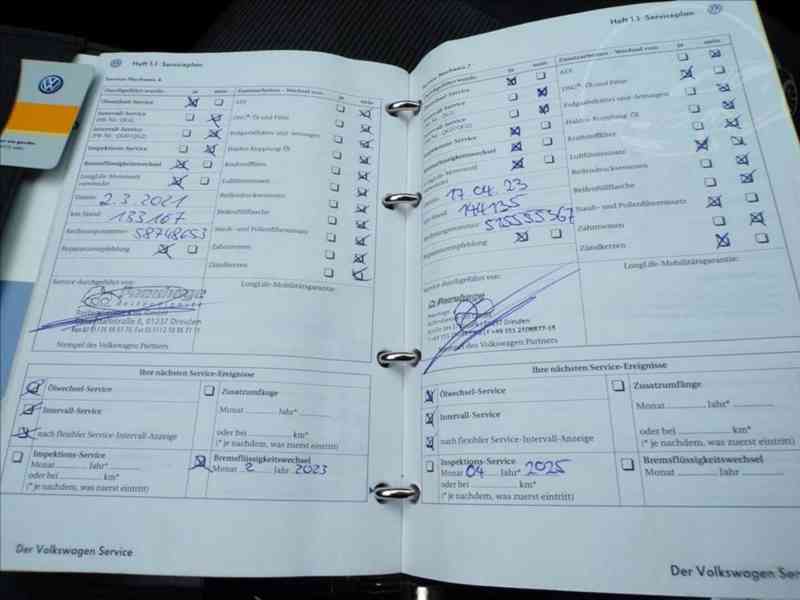 Heft 1.1 Serviceplan
Service-Nachweis 6
Durchgeführt wurde: ja nein
Ölwechsel-Service
Intervall-Service
Intervall-Service
Inspektions-Service
Bremsflüssigkeitswechsel
LongLife-Motoröl
verwendet
Datum: 2.3.2021
km-Stand: 133167
Rechnungsnummer: 58748653
Reparaturempfehlung
Zusatzarbeiten - Wechsel von: ja nein
DSG® Öl und Filter
Haldex Kupplung Öl
Kraftstofffilter
Luftfiltereinsatz
Reifendruckwarnung
Reifenfüllflasche
Staub- und Pollenfiltereinsatz
Zahnriemen
Zündkerzen
Service durchgeführt von:
01237 Dresden
Stempel des Volkswagen Partners
LongLife-Mobilitätsgarantie:
Ihre nächsten Service-Ereignisse
Ölwechsel-Service
Intervall-Service
nach flexibler Service-Intervall-Anzeige
Inspektions-Service
Monat Jahr*
oder bei km*
(* je nachdem, was zuerst eintritt)
Zusatzumfänge
Monat Jahr*
oder bei km*
(* je nachdem, was zuerst eintritt)
Bremsflüssigkeitswechsel
Monat 2 Jahr 2023
Der Volkswagen Service
Heft 1.1 Serviceplan
Service-Nachweis 7
Durchgeführt wurde: ja nein
Bremsflüssigkeitswechsel
LongLife-Motoröl
Datum: 17.04.23
km-Stand: 144135
Rechnungsnummer:
Reparaturempfehlung
Zusatzarbeiten - Wechsel von: ja nein
DSG® Öl und Filter
Haldex Kupplung Öl
Kraftstofffilter
Luftfiltereinsatz
Reifenfüllflasche
Staub- und Pollenfiltereinsatz
Zahnriemen
Zündkerzen
Service durchgeführt von:
01237 Dresden
Stempel des Volkswagen Partners
LongLife-Mobilitätsgarantie:
Ihre nächsten Service-Ereignisse
Ölwechsel-Service
Intervall-Service
nach flexibler Service-Intervall-Anzeige
Inspektions-Service
Monat 04 Jahr* 2025
oder bei km*
(* je nachdem, was zuerst eintritt)
Zusatzumfänge
Monat Jahr*
oder bei km*
(* je nachdem, was zuerst eintritt)
Bremsflüssigkeitswechsel
Monat Jahr
Der Volkswagen Ser